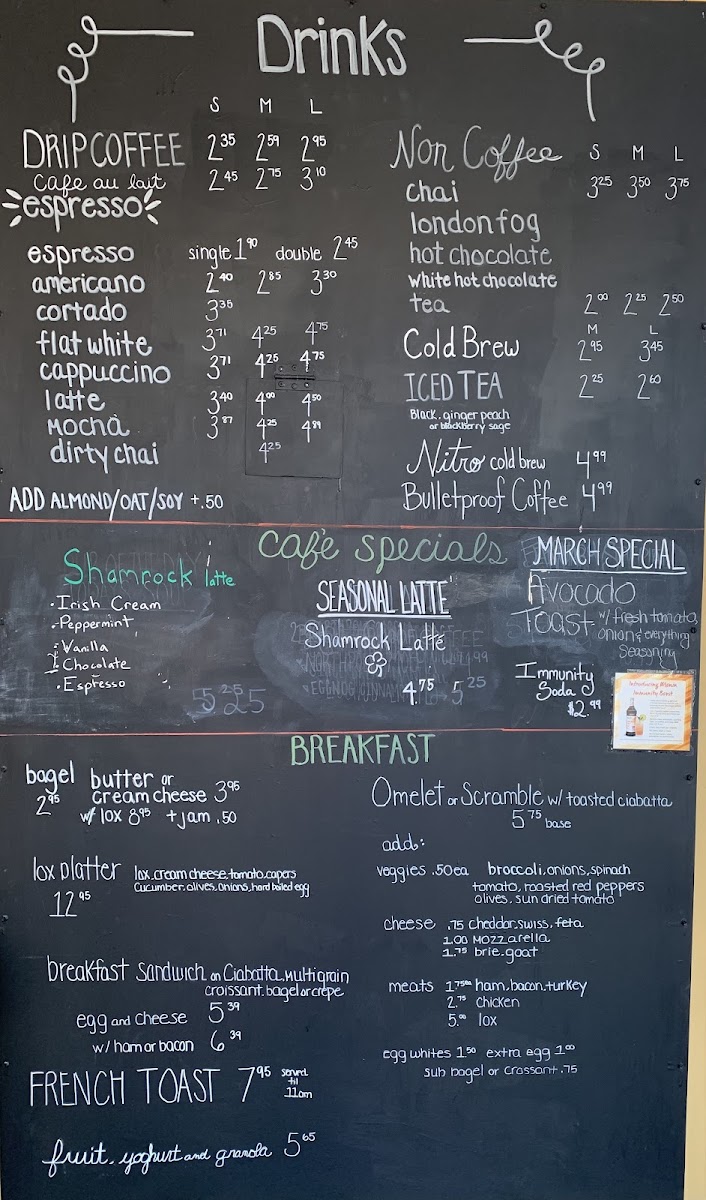 Drinks
S M L
DRIP COFFEE 2.35 2.59 2.95
cafe au lait 2.45 2.75 3.10
espresso
espresso single 1.90 double 2.45
americano 2.40 2.85 3.30
cortado 3.35
flat white 3.71 4.25 4.75
cappuccino 3.71 4.25 4.75
latte 3.40 4.00 4.50
mocha 3.87 4.25 4.89
dirty chai 4.25
ADD ALMOND/OAT/SOY +.50
Non Coffee S M L
chai 3.25 3.50 3.75
london fog
hot chocolate
white hot chocolate
tea 2.00 2.25 2.50
M L
Cold Brew 2.95 3.45
ICED TEA 2.25 2.60
Black, ginger peach
or blackberry sage
Nitro cold brew 4.99
Bulletproof Coffee 4.99
Café Specials
Shamrock latte
· Irish Cream
· Peppermint
· Vanilla
· Chocolate
· Espresso
5.25
SEASONAL LATTE
Shamrock Latte
4.75 5.25
MARCH SPECIAL
Avocado
Toast w/ fresh tomato,
onion & everything
Seasoning
Immunity
Soda
$2.99
Immunity Boost
BREAKFAST
bagel butter or
2.95 cream cheese 3.95
w/ lox 8.95 + jam .50
lox platter lox, cream cheese, tomato, capers
12.95 Cucumber, olives, onions, hard boiled egg
breakfast sandwich on Ciabatta, Multigrain
croissant, bagel or crepe
egg and cheese 5.39
w/ ham or bacon 6.39
FRENCH TOAST 7.95 served
til
11am
fruit, yoghurt and granola 5.65
Omelet or Scramble w/ toasted ciabatta
5.75 base
add:
veggies .50 ea broccoli, onions, spinach
tomato, roasted red peppers
olives, sun dried tomato
cheese .75 Cheddar, swiss, feta
1.00 Mozzarella
1.75 brie, goat
meats 1.75 ea ham, bacon, turkey
2.75 chicken
5.00 lox
egg whites 1.50 extra egg 1.00
sub bagel or Crossant .75